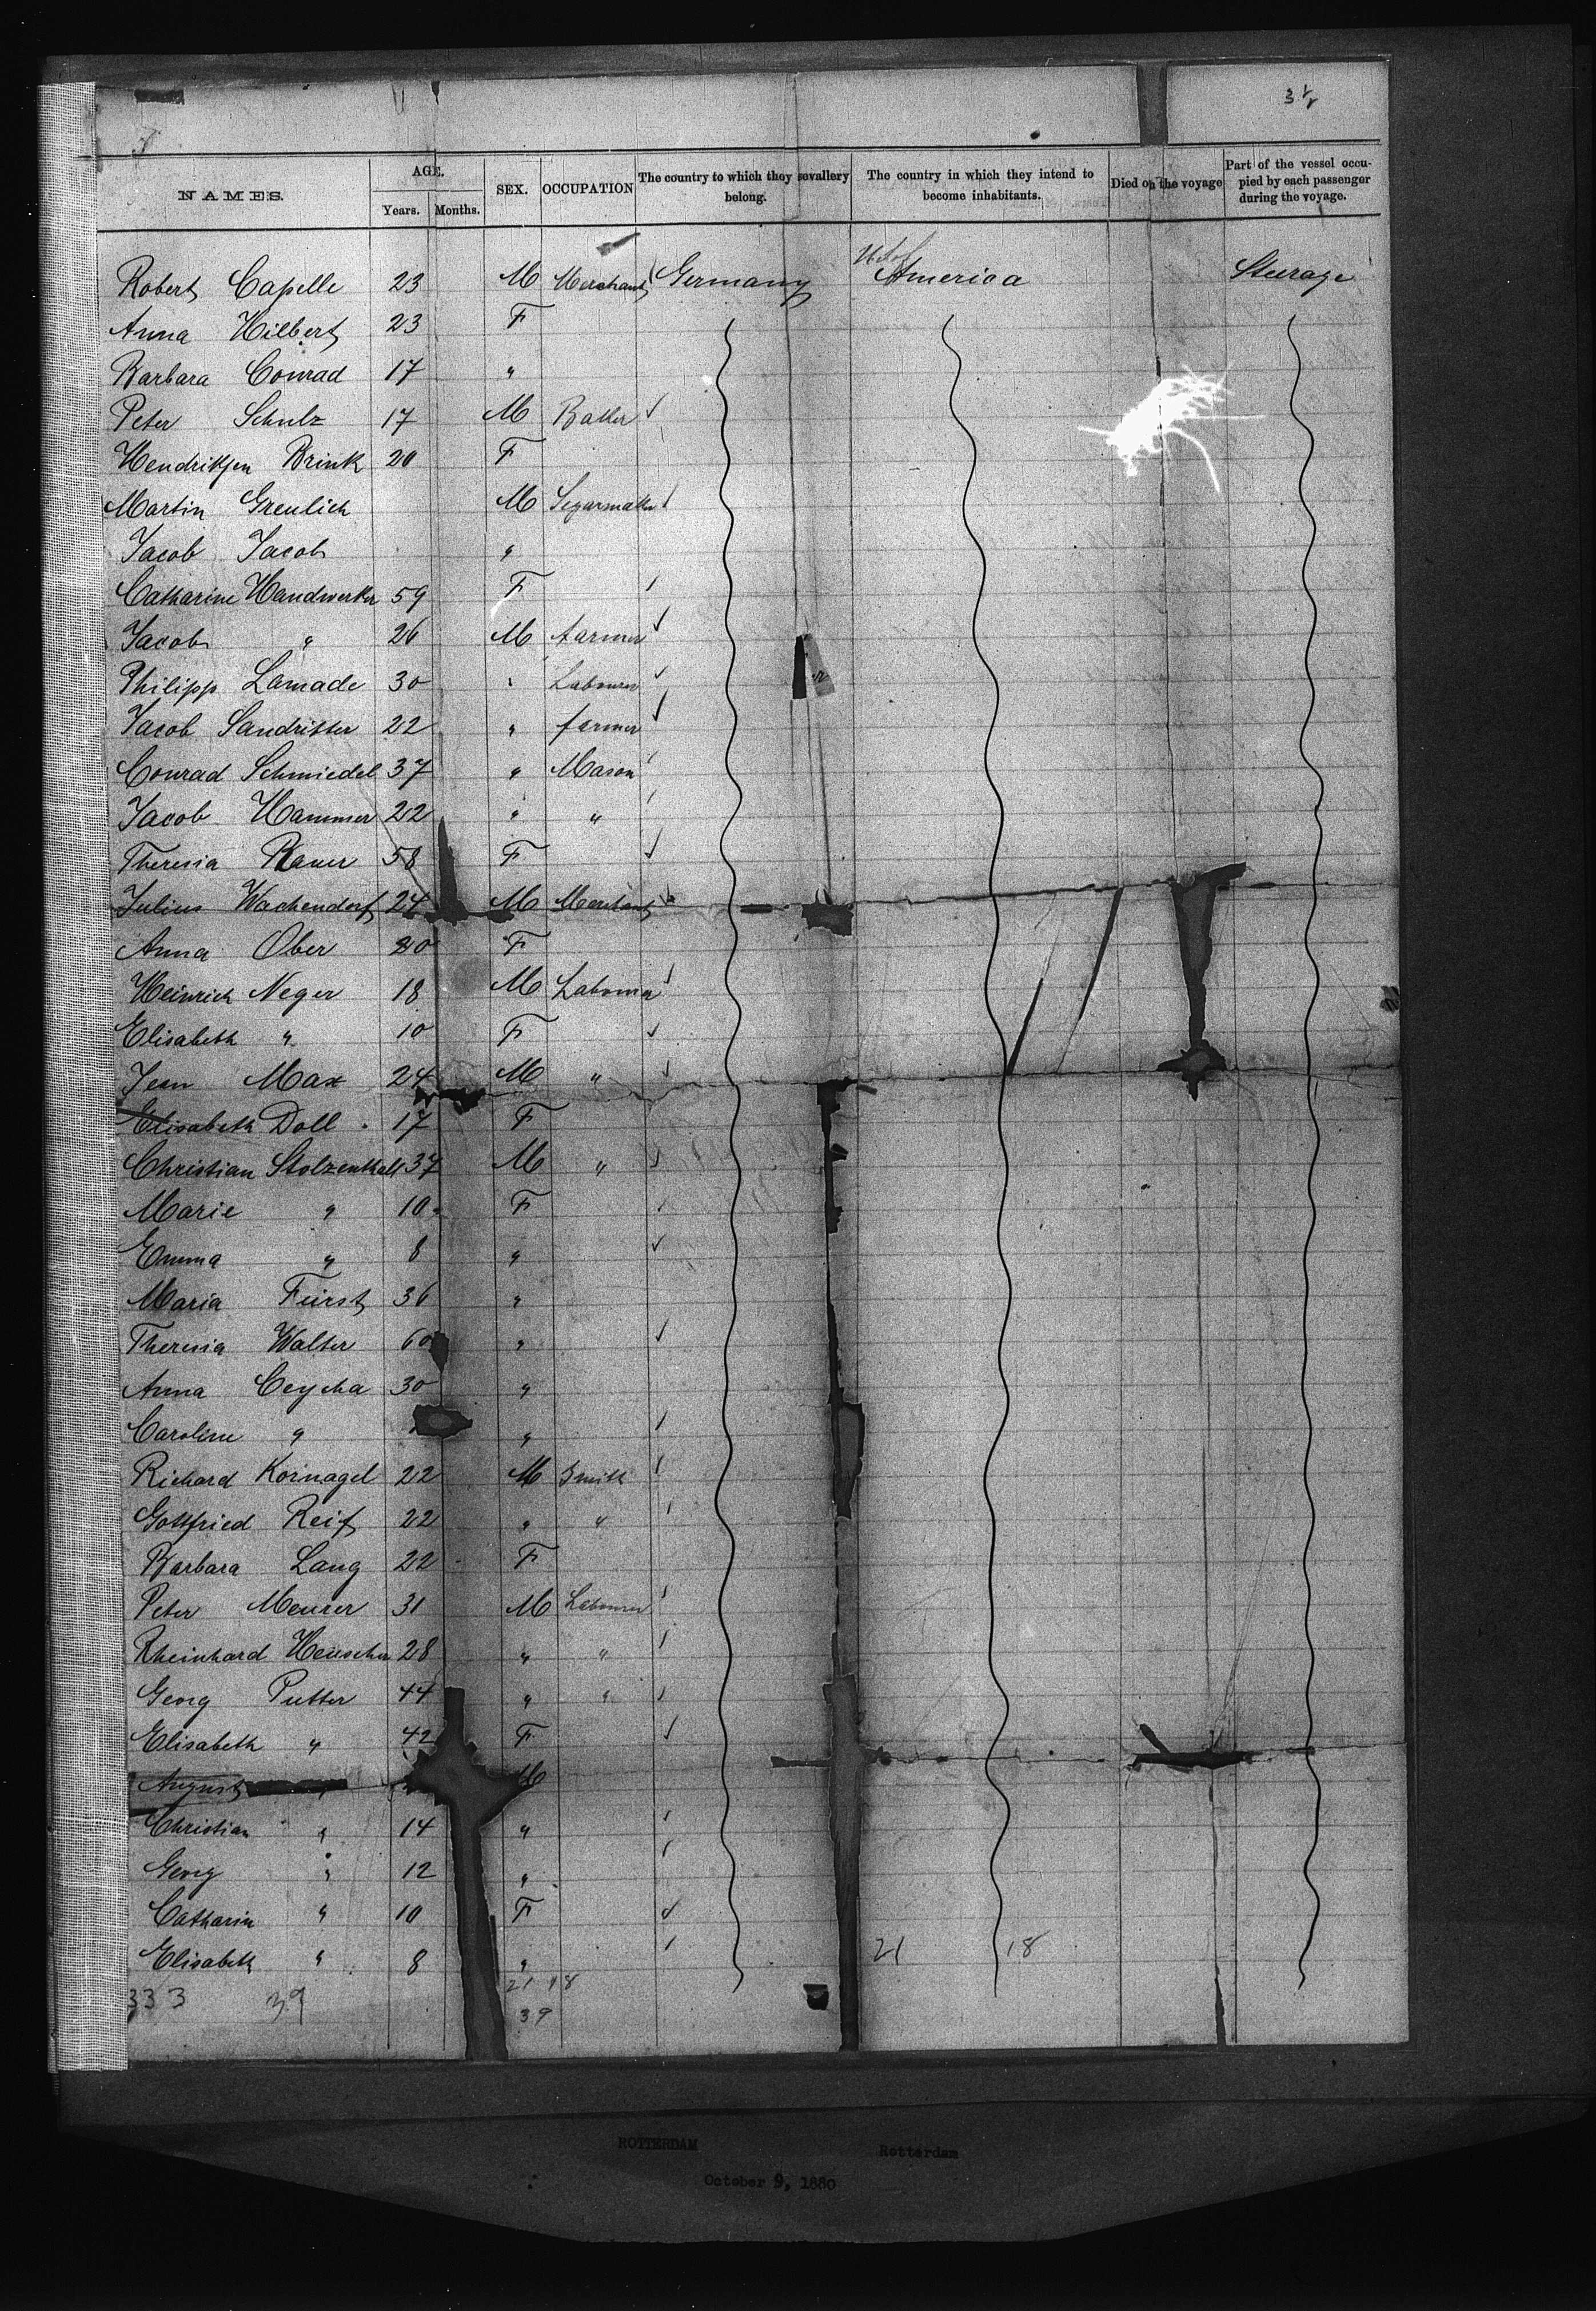 3
NAMES. AGE. SEX. OCCUPATION The country to which they sevallery belong. The country in which they intend to become inhabitants. Died on the voyage Part of the vessel occupied by each passenger during the voyage.
Years. Months.
Robert Capelle 23 M Merchant Germany America Steerage
Anna Hilbert 23 F
Barbara Conrad 17 "
Peter Schulz 17 M Baker
Hendrikjen Brink 20 F
Martin Greulich M Segarmaker
Jacob Jacob "
Catharine Handwerker 59 F
Jacob " 26 M farmer
Philipp Lamade 30 " Labourer
Jacob Sandritter 22 " farmer
Conrad Schmiedel 37 " Mason
Jacob Hammer 22 " "
Theresia 58 F
Julius Wachendorf 24 M Merchant
Anna Ober 20 F
Heinrich Neger 18 M Labourer
Elisabeth " 10 F
Jean Max 24 M "
Elisabeth Doll 17 F
Christian Stolzenthal 37 M "
Marie " 10 F
Emma " 8 "
Maria Fürst 36 "
Theresia Walter 60 "
Anna Ceycha 30 "
Caroline " "
Richard Kornagel 22 M Smith
Gottfried Reif 22 " "
Barbara Lang 22 F
Peter Meurer 31 M Labourer
Rheinhard Heuscher 28 " "
Georg Putter 44 " "
Elisabeth " 42 F
August " M
Christian " 14 "
Georg " 12 "
Catharin " 10 F
Elisabeth " 8 " 21 18
333 39 21 18
39
ROTTERDAM Rotterdam
October 9, 1880